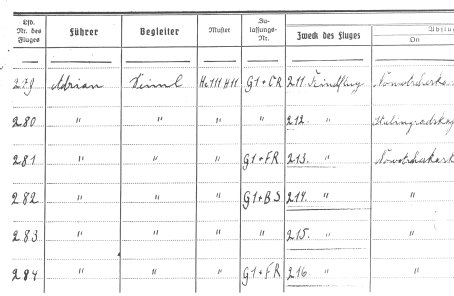 Lfd. Nr. des Fluges Führer Begleiter Muster Zulassungs-Nr. Zweck des Fluges Ort
279 Adrian He 111 H11 G1+CR 211. Feindflug
280 " " " " 212. "
281 " " G1+FR 213. "
282 " " G1+BS 214. " "
283 " " " 215. " "
284 " " G1+FR 216. " "